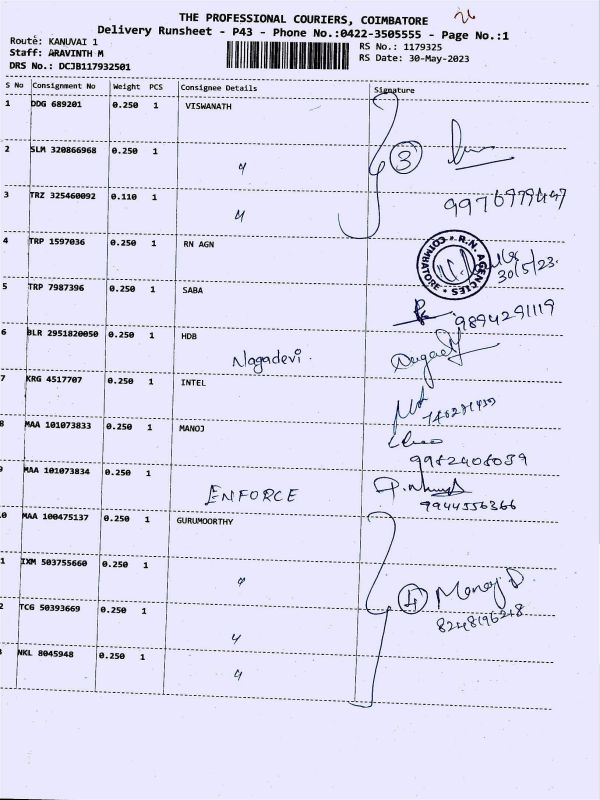 26
THE PROFESSIONAL COURIERS, COIMBATORE
Delivery Runsheet - P43 - Phone No.:0422-3505555 - Page No.:1
Route: KANUVAI 1
RS No.: 1179325
Staff: ARAVINTH M
RS Date: 30-May-2023
DRS No.: DCJB117932501
S No Consignment No Weight PCS Consignee Details Signature
1 DDG 689201 0.250 1 VISWANATH
2 SLM 320866968 0.250 1 〃 3
3 TRZ 325460092 0.110 1 〃
4 TRP 1597036 0.250 1 RN AGN R.N. AGENCIES * COIMBATORE * 30/5/23.
5 TRP 7987396 0.250 1 SABA 9894291119
6 BLR 2951820050 0.250 1 HDB
Nagadevi.
7 KRG 4517707 0.250 1 INTEL
8 MAA 101073833 0.250 1 MANOJ
9 MAA 101073834 0.250 1 ENFORCE 9944556366
0 MAA 100475137 0.250 1 GURUMOORTHY
1 IXM 503755660 0.250 1 〃 4 Manoj D.
2 TCG 50393669 0.250 1 〃 8248196248
3 NKL 8045948 0.250 1 〃